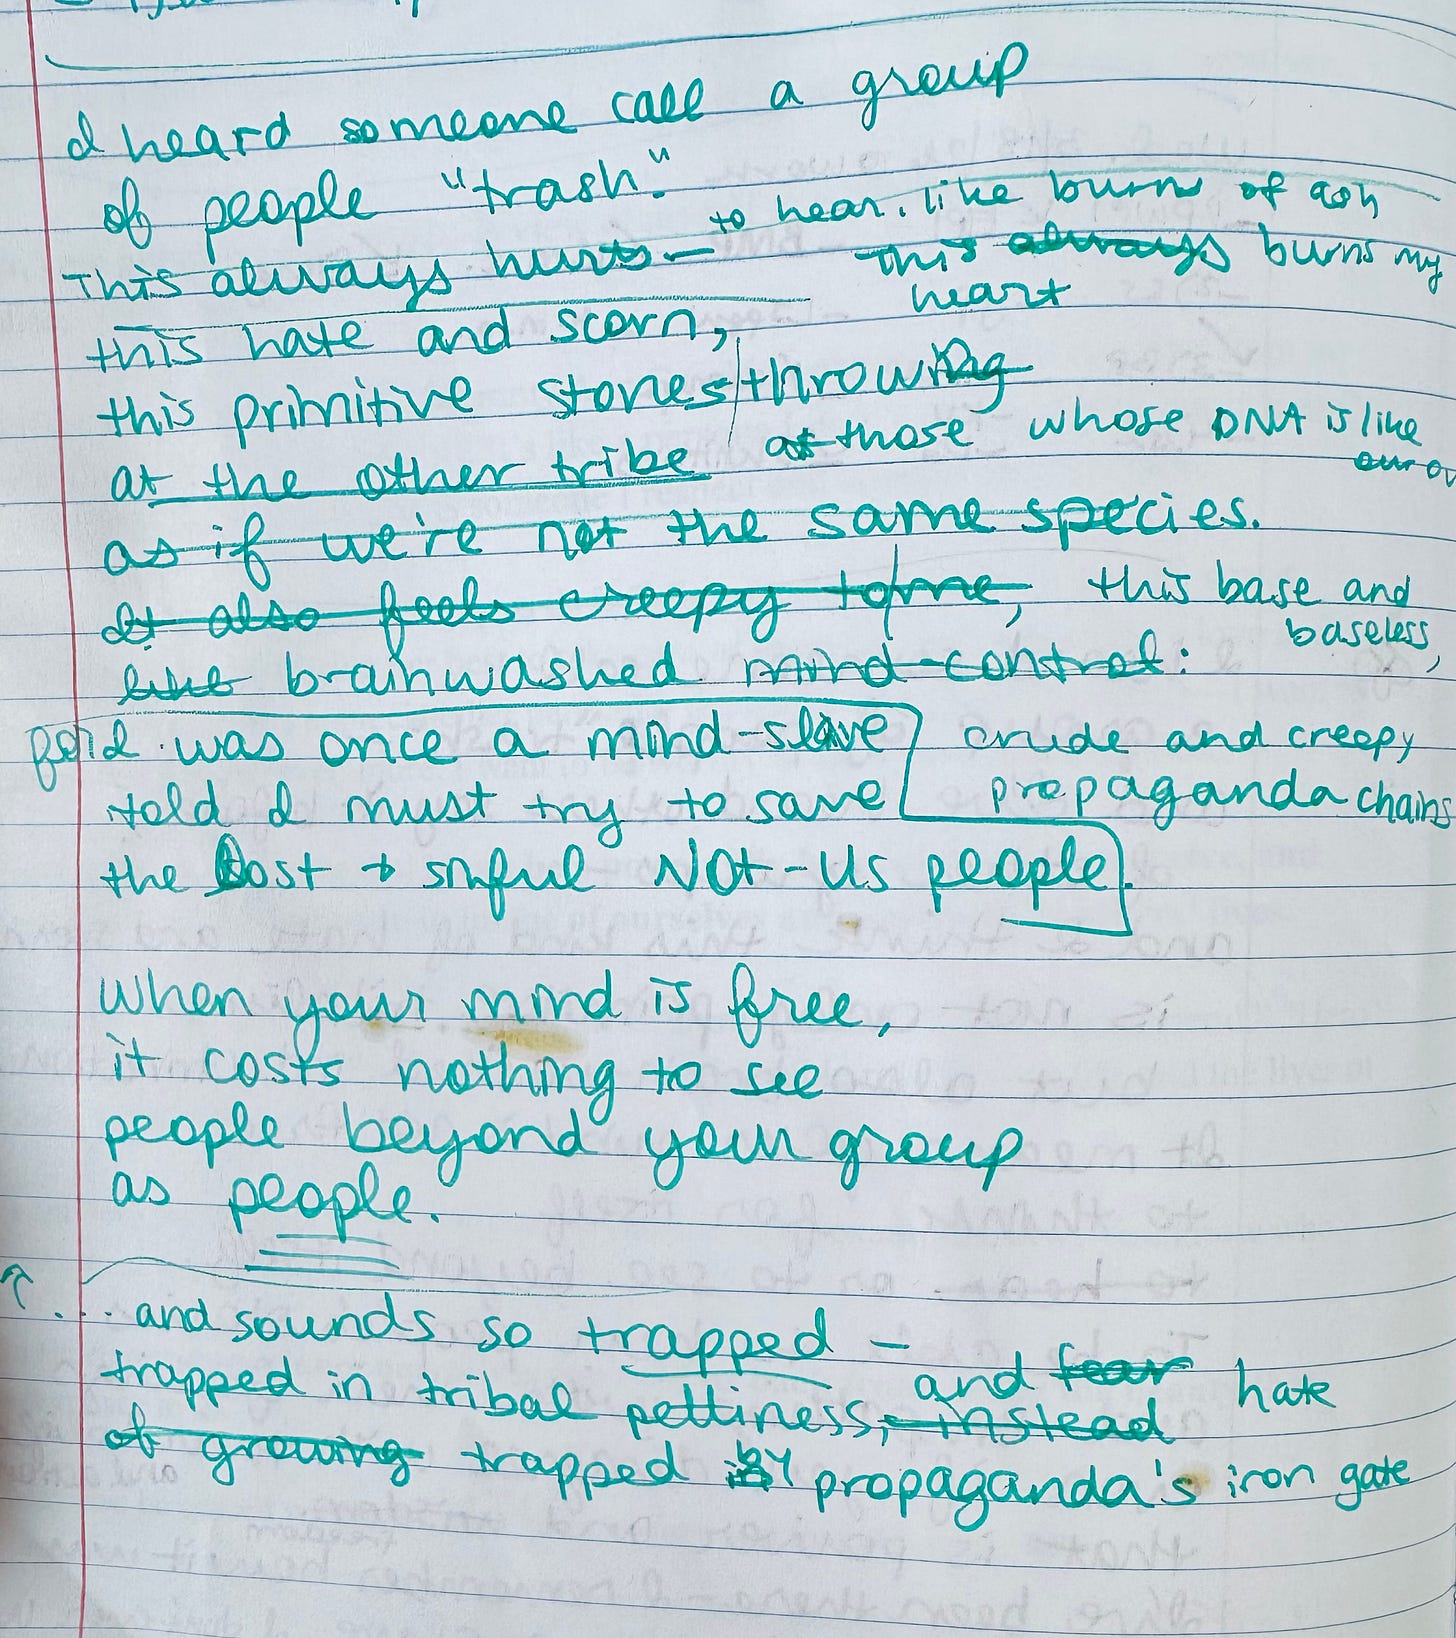 I heard someone call a group
of people "trash."
This always hurts— to hear. like burns of ash
this always burns my
heart
this hate and scorn,
this primitive stones throwing
at the other tribe at those whose DNA is like
our
as if we're not the same species.
It also feels creepy to me, this base and
baseless,
like brainwashed mind-control:
I was once a mind-slave crude and creepy
told I must try to save propaganda chains
the Lost + sinful Not-Us people.
when your mind is free,
it costs nothing to see
people beyond your group
as people.
... and sounds so trapped –
trapped in tribal pettiness, instead and fear hate
of growing trapped by propaganda's iron gate